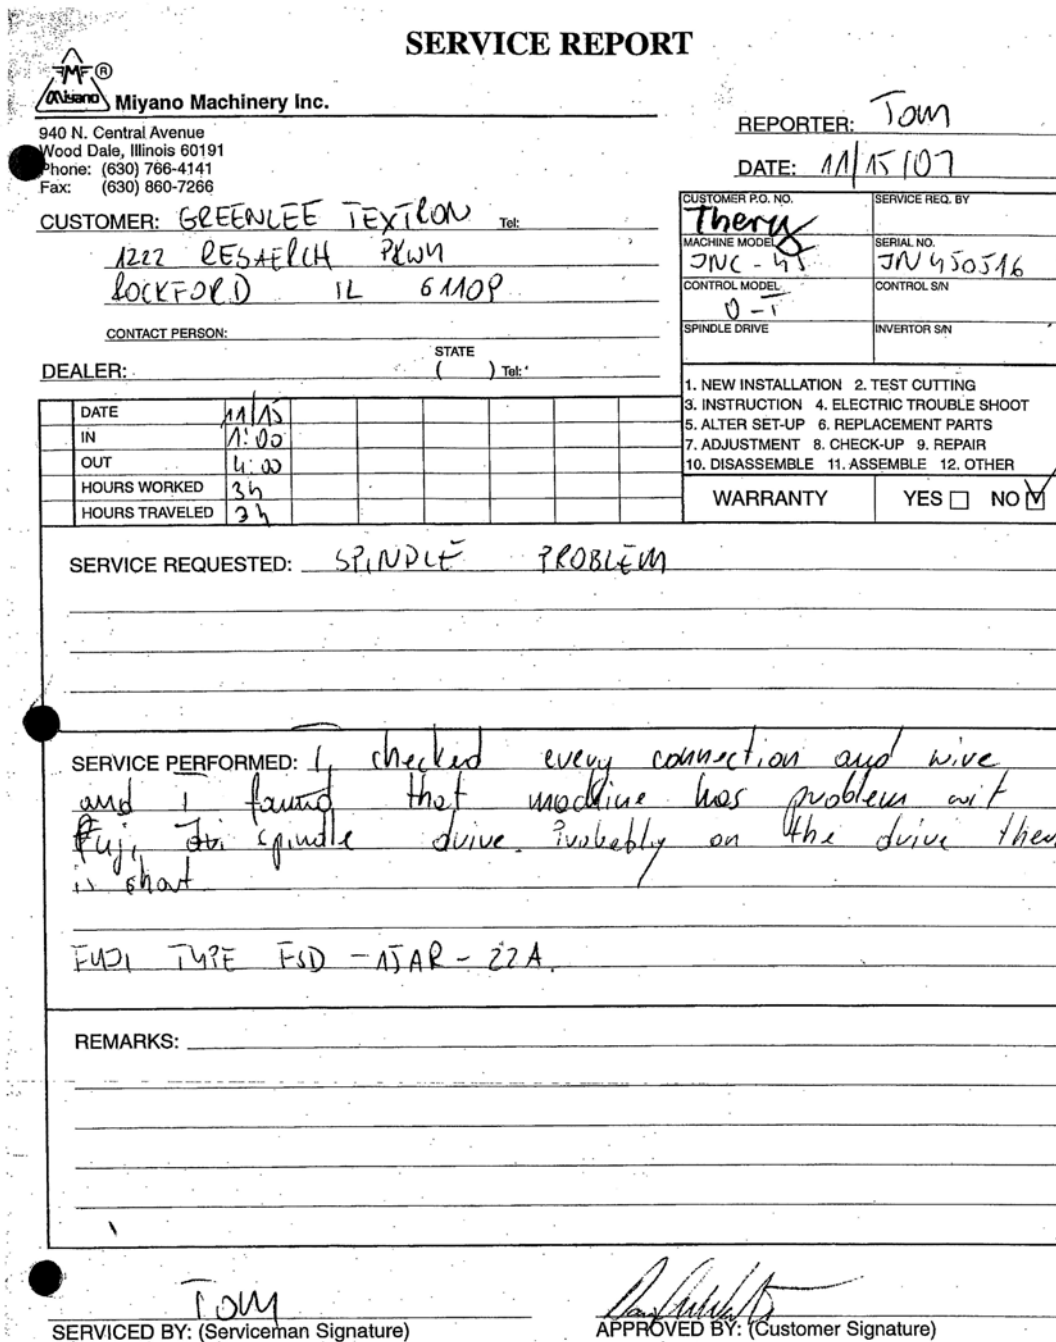 SERVICE REPORT
MF®
Miyano
Miyano Machinery Inc.
940 N. Central Avenue
Wood Dale, Illinois 60191
Phone: (630) 766-4141
Fax: (630) 860-7266
REPORTER: Tom
DATE: 11/15/07
CUSTOMER: GREENLEE TEXTRON Tel:
1222 RESAERCH PKWY
ROCKFORD IL 61109
CONTACT PERSON:
DEALER: STATE ( ) Tel:
CUSTOMER P.O. NO. SERVICE REQ. BY
MACHINE MODEL SERIAL NO.
JNC-45 JN450516
CONTROL MODEL CONTROL S/N
0-T
SPINDLE DRIVE INVERTOR S/N
1. NEW INSTALLATION 2. TEST CUTTING
3. INSTRUCTION 4. ELECTRIC TROUBLE SHOOT
5. ALTER SET-UP 6. REPLACEMENT PARTS
7. ADJUSTMENT 8. CHECK-UP 9. REPAIR
10. DISASSEMBLE 11. ASSEMBLE 12. OTHER
WARRANTY YES NO
DATE 11/15
IN 1:00
OUT 4:00
HOURS WORKED 3h
HOURS TRAVELED 3h
SERVICE REQUESTED: SPINDLE PROBLEM
SERVICE PERFORMED: I checked every connection and wire
and I found that machine has problem wit
Fuji spindle drive. Probably on the drive
is short
FUJI TYPE FSD-15AR-22A.
REMARKS:
Tom
SERVICED BY: (Serviceman Signature)
APPROVED BY: (Customer Signature)